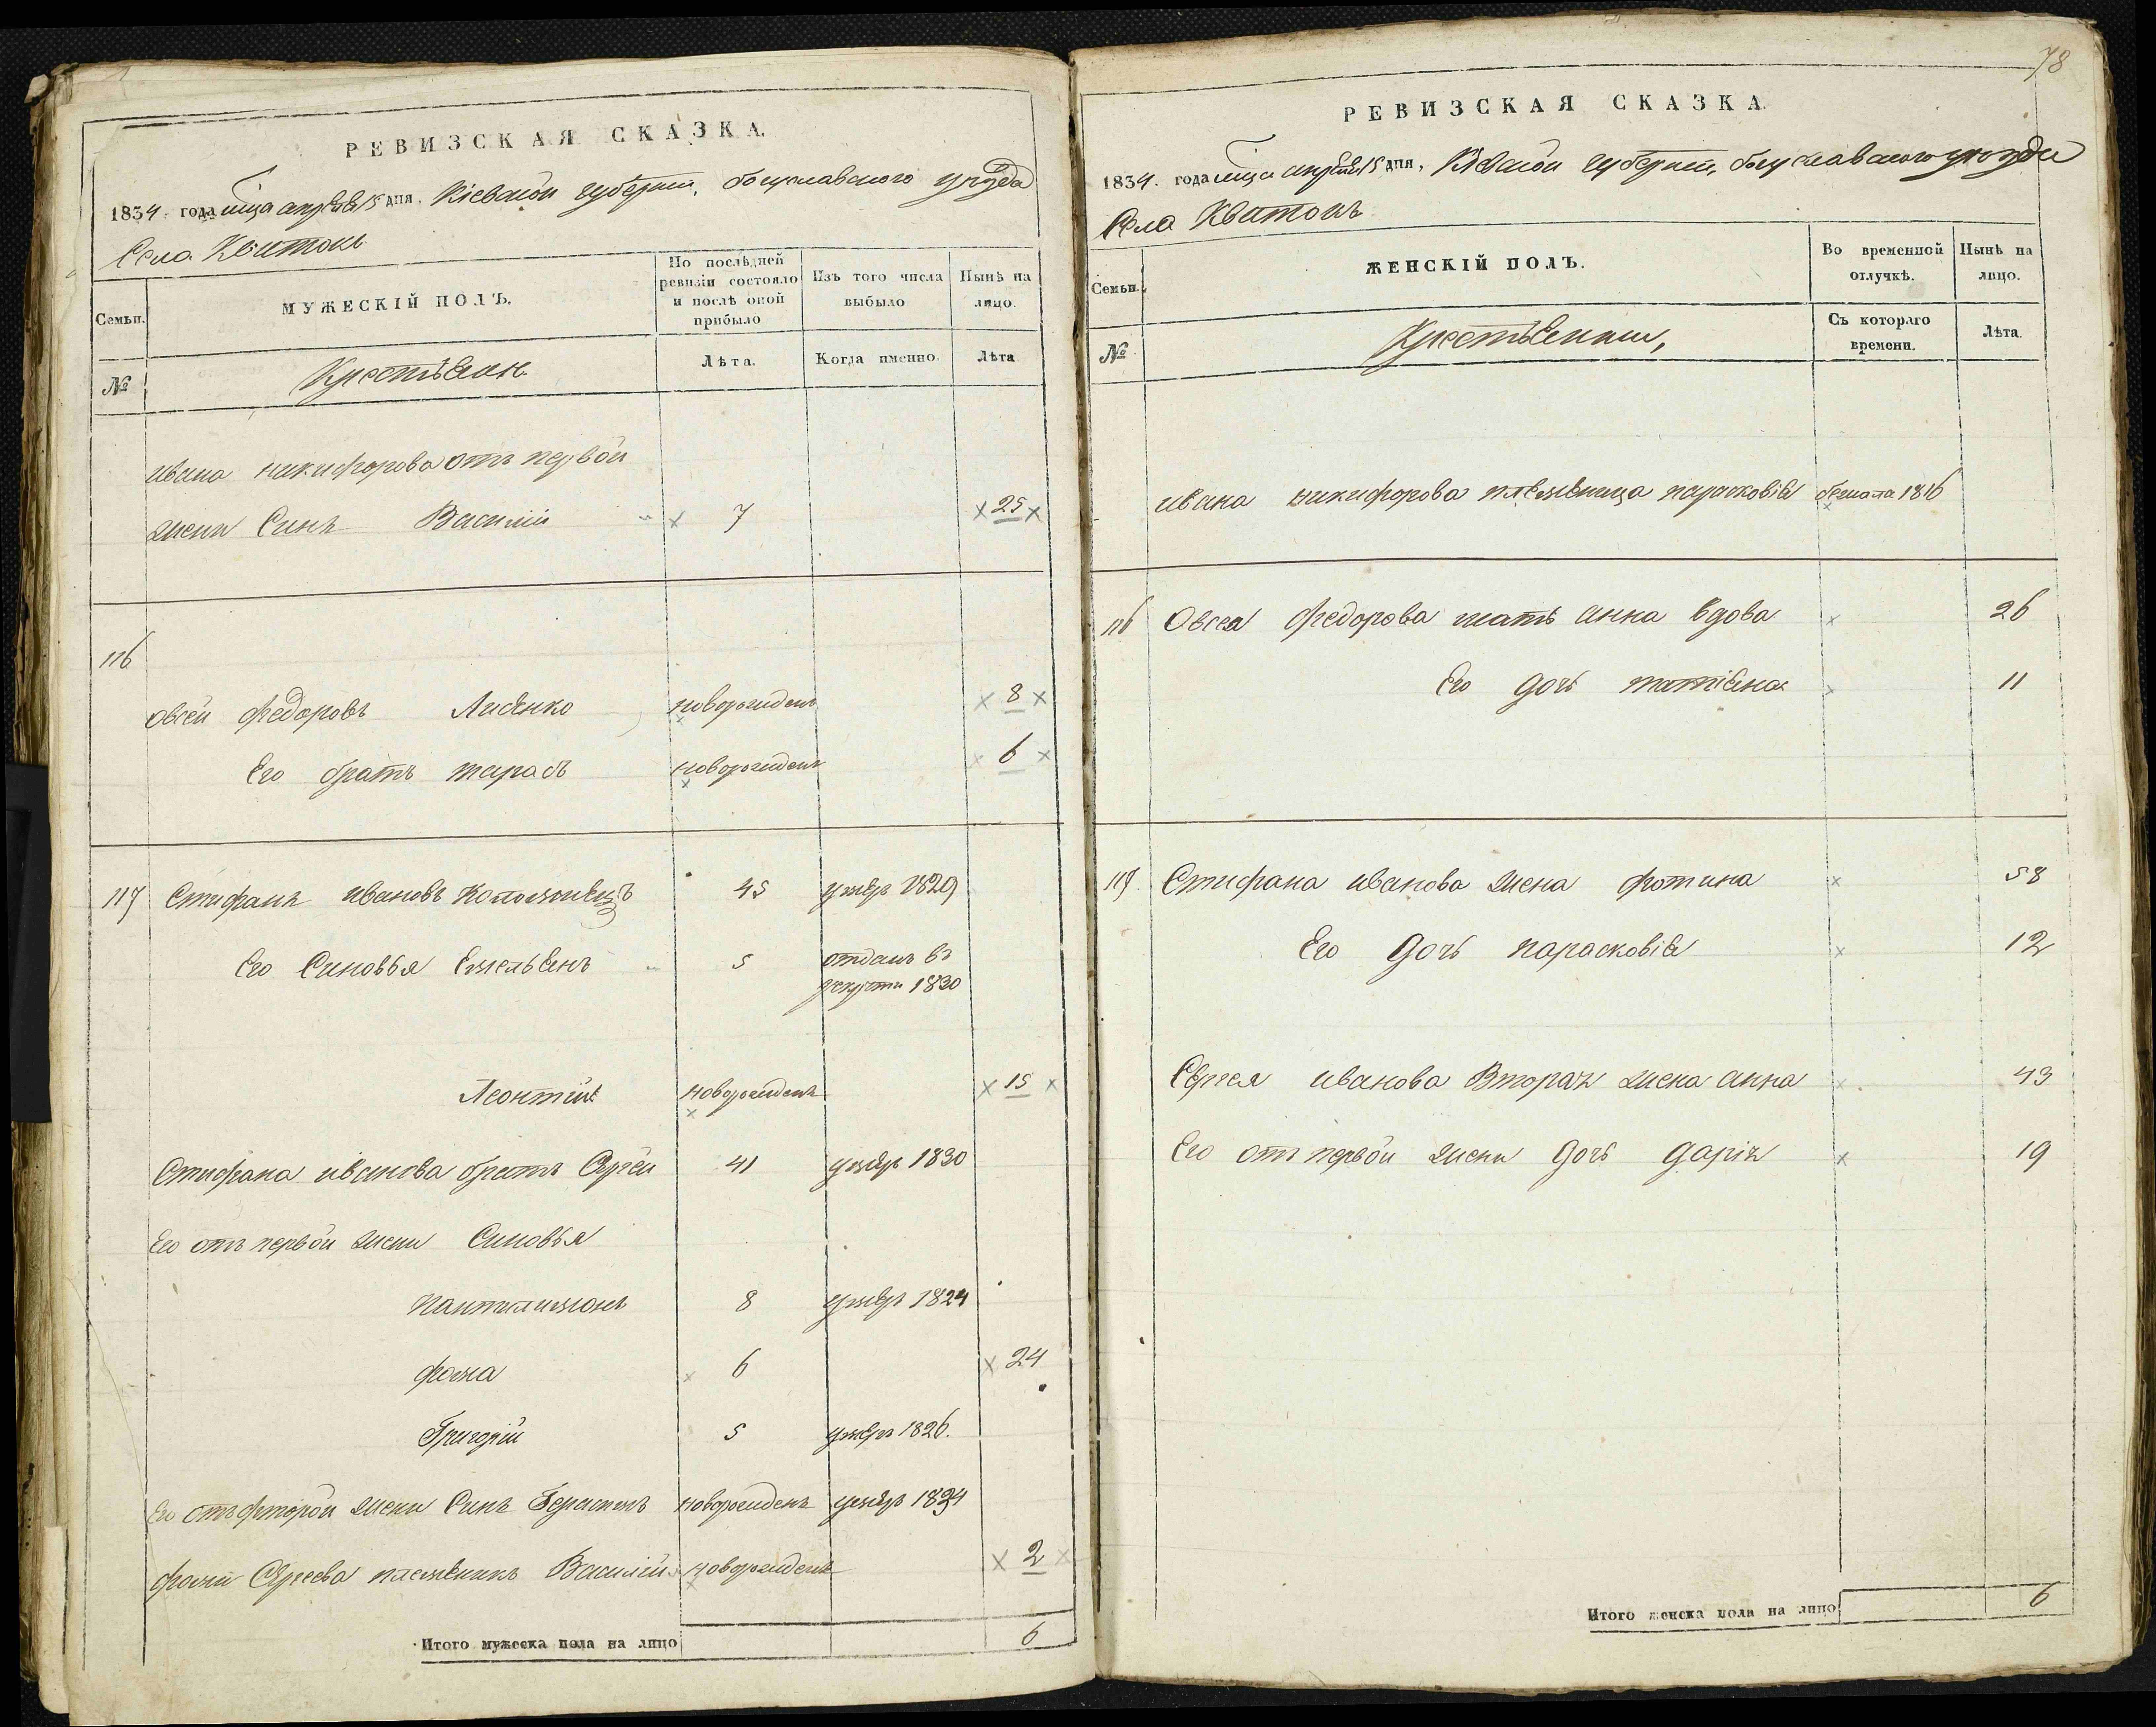 РЕВИЗСКАЯ СКАЗКА.
1834. года мца апреля 15 дня, Кіевской губерніи, богуславского уезда
Села Квитокъ
Семьи.
МУЖЕСКІЙ ПОЛЪ.
По послѣдней ревизіи состояло и послѣ оной прибыло
Изъ того числа выбыло
Нынѣ на лицо.
№
Крестьяне
Лѣта.
Когда именно.
Лѣта
ивана никифорова отъ первой
жени Синъ Василій 7 25
116
овсей федоровъ Лисенко новорожденъ 8
Его братъ тарасъ новорожденъ 6
117 Стифанъ ивановъ 45 умеръ 1829
Его Синовья Емельянъ 5 отданъ въ
рекрути 1830
Леонтій новорожденъ 15
Стифана иванова братъ Сергей 41 умеръ 1830
Его отъ первой жени Синовья
пантилимонъ 8 умеръ 1824
фома 6 24
Григорій 5 умеръ 1826.
Его отъ фторой жени Синъ Герасимъ новорожденъ умеръ 1834
фоми Сергеева племяникъ Василій новорожденъ 2
Итого мужеска пола на лицо 6
78
РЕВИЗСКАЯ СКАЗКА.
1834. года мца апреля 15 дня, Кіевской губерніи, богуславского уезда
Села Квитокъ
Семьи.
ЖЕНСКІЙ ПОЛЪ.
Во временной отлучкѣ.
Нынѣ на лицо.
№
Крестьянки,
Съ котораго времени.
Лѣта.
ивана никифорова племяница парасковія бежала 1816
116 Овсея федорова мать анна вдова 26
Его дочь татіяна 11
117. Стифана иванова жена фотина 58
Его дочь парасковія 12
Сергея иванова Вторая жена анна 43
Его отъ первой жени дочь дарія 19
Итого женска пола на лицо 6